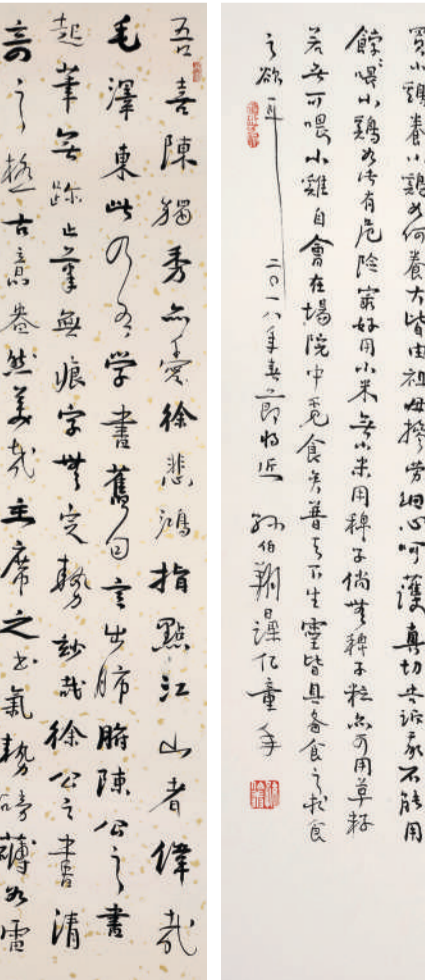 買小鷄養小鷄如何養大皆由祖母操勞細心呵護真切告訴家不能用
餑々喂小鷄如法有危險最好用小米無小米用稗子倘無稗子粒亦可用草籽
若無可喂小雞自會在場院中覓食矣普天下生靈皆具備食之求食
之欲耳
二〇一八年春節將近 孫伯翔晨課憶童年
吾喜陳獨秀亦愛徐悲鴻指點江山者偉哉
毛澤東此乃吾學書舊句言出肺腑陳公之書
起筆無跡止筆無痕字無定勢妙哉徐公之書清
奇之極古意盎然美哉主席之書氣勢磅礴如雷